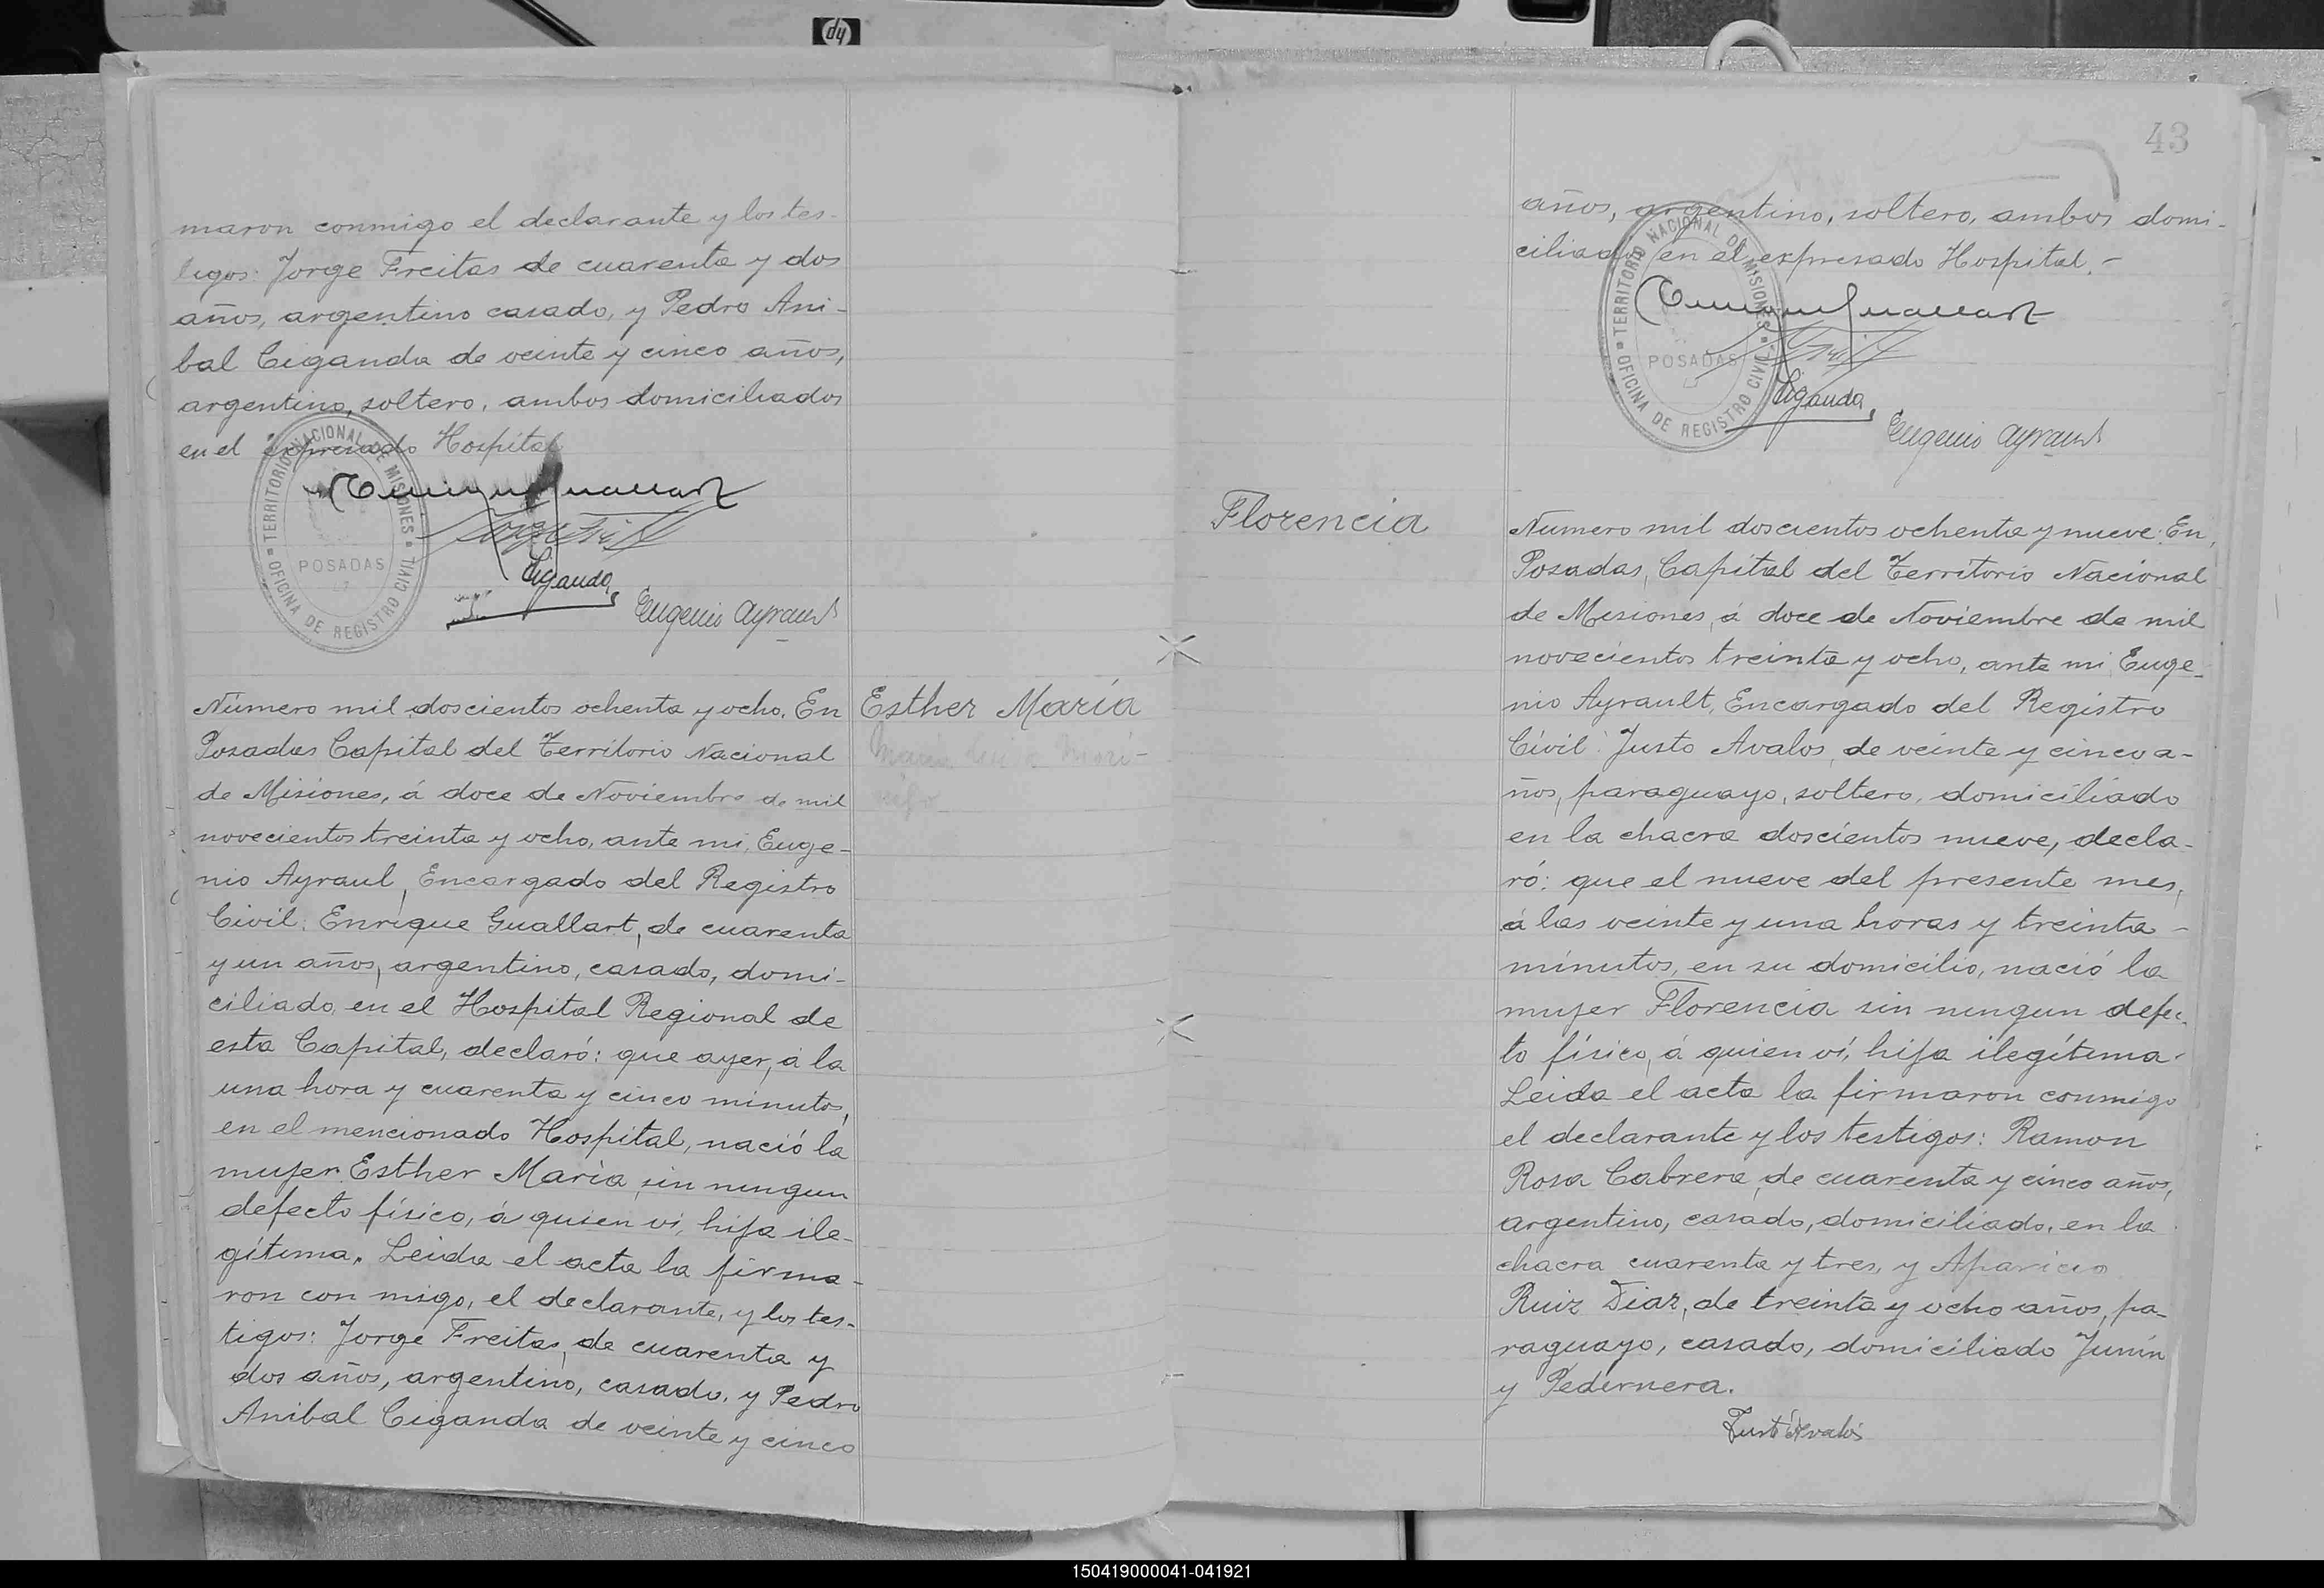 hp
maron conmigo el declarante y los tes-
tigos: Jorge Freitas de cuarenta y dos
años, argentino casado, y Pedro Ani-
bal Ciganda de veinte y cinco años,
argentino, soltero, ambos domiciliados
en el expresado Hospital
TERRITORIO NACIONAL DE MISIONES
POSADAS
OFICINA DE REGISTRO CIVIL
Ciganda
Eugenio Ayrault
Número mil doscientos ochenta y ocho. En
Posadas Capital del Territorio Nacional
de Misiones, á doce de Noviembre de mil
novecientos treinta y ocho, ante mi, Euge-
nio Ayraul, Encargado del Registro
Civil: Enrique Guallart, de cuarenta
y un años, argentino, casado, domi-
ciliado, en el Hospital Regional de
esta Capital, declaró: que ayer, á la
una hora y cuarenta y cinco minutos,
en el mencionado Hospital, nació la
mujer Esther María, sin ningun
defecto físico, á quien vi, hija ile-
gítima. Leida el acta la firma-
ron con migo, el declarante, y los tes-
tigos: Jorge Freitas, de cuarenta y
dos años, argentino, casado, y Pedro
Anibal Ciganda de veinte y cinco
Esther María
43
años, argentino, soltero, ambos domi-
ciliados en el expresado Hospital.-
TERRITORIO NACIONAL DE MISIONES
POSADAS
OFICINA DE REGISTRO CIVIL
Ciganda
Eugenio Ayrault
Florencia
Numero mil doscientos ochenta y nueve: En,
Posadas, Capital del Territorio Nacional
de Misiones, á doce de Noviembre de mil
novecientos treinta y ocho, ante mi, Euge-
nio Ayrault, Encargado del Registro
Civil: Justo Avalos, de veinte y cinco a-
ños, paraguayo, soltero, domiciliado
en la chacra doscientos nueve, decla-
ró: que el nueve del presente mes,
á las veinte y una horas y treinta -
minutos, en su domicilio, nació la
mujer Florencia sin ningun defec-
to físico, á quien ví, hija ilegítima.
Leida el acta la firmaron conmigo
el declarante y los testigos: Ramon
Rosa Cabrera, de cuarenta y cinco años,
argentino, casado, domiciliado, en la
chacra cuarenta y tres, y Aparicio
Ruiz Diaz, de treinta y ocho años, pa-
raguayo, casado, domiciliado Junín
y Pedernera.
Justo Avalos
150419000041-041921